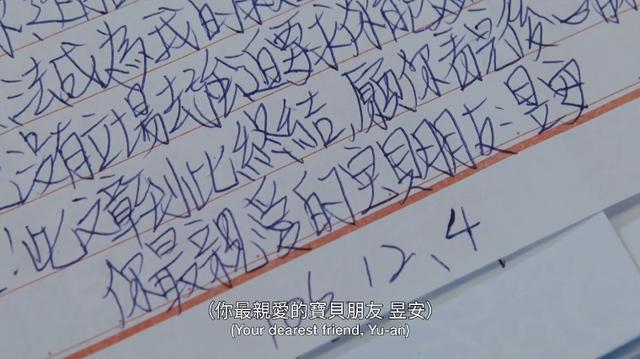 法成為我的
沒有立場去強迫要求你
!此文章到此終結,願你看完後
你最親愛的宝貝朋友:昱安
12、4
(你最親愛的寶貝朋友 昱安)
(Your dearest friend, Yu-an)